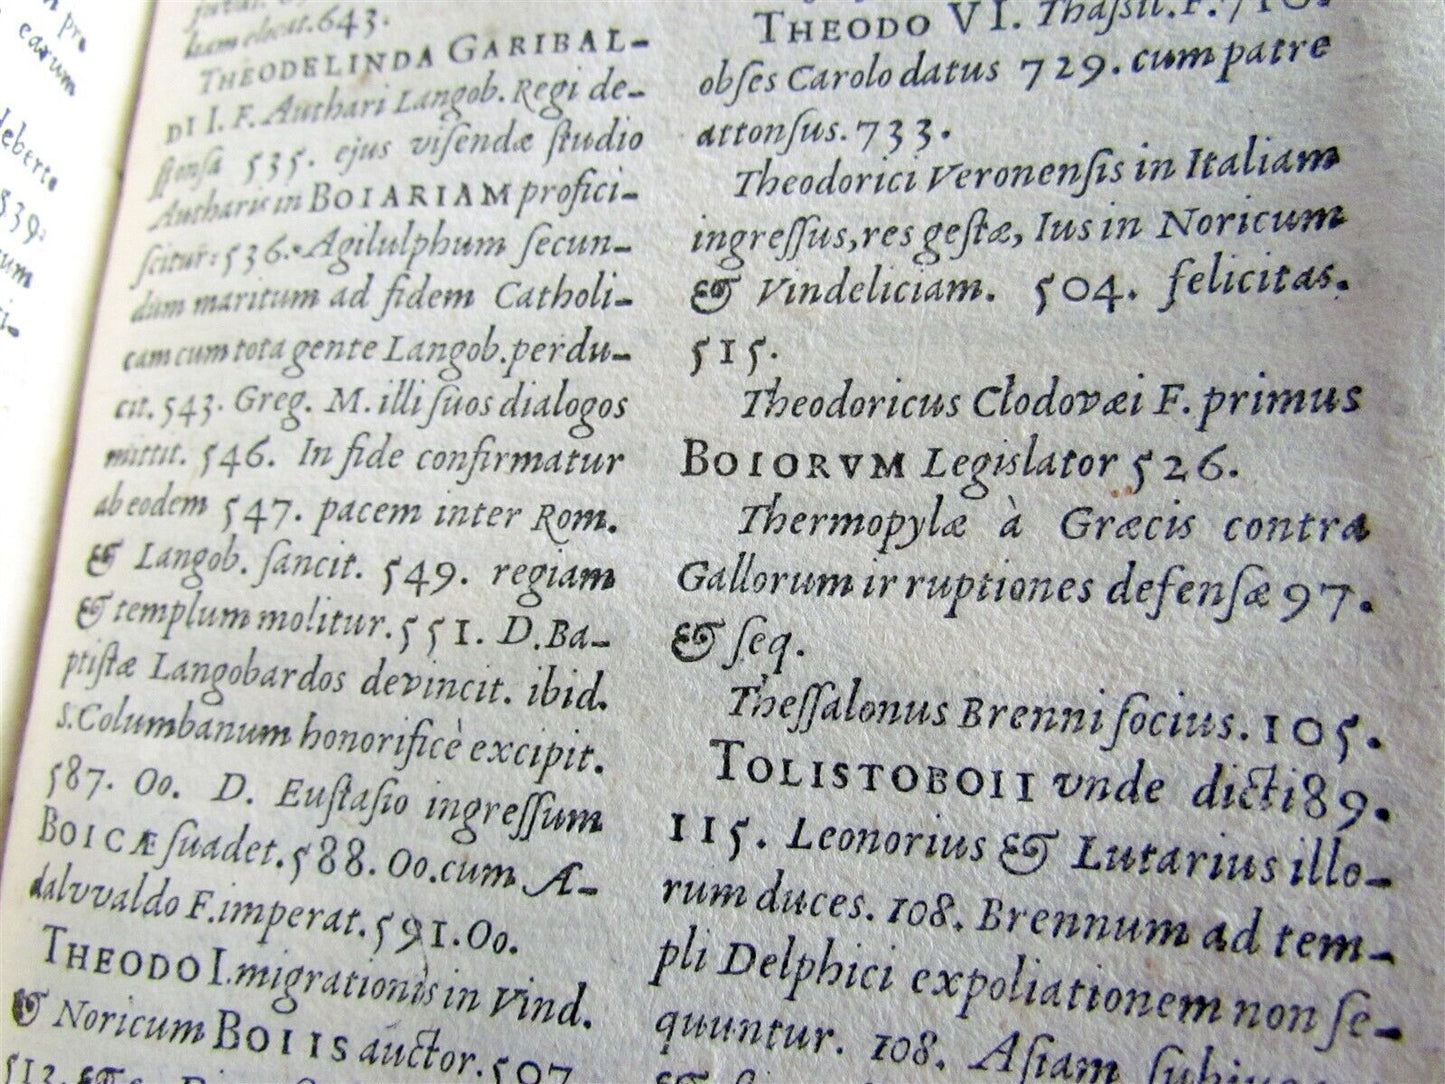 pro
earum
deberto
839.
tum
ham elocat. 643.
THEODELINDA GARIBAL-
DI I. F. Authari Langob. Regi de-
sponsa 535. ejus visendæ studio
Autharis in BOIARIAM profici-
scitur: 536. Agilulphum secun-
dum maritum ad fidem Catholi-
cam cum tota gente Langob. perdu-
cit. 543. Greg. M. illi suos dialogos
mittit. 546. In fide confirmatur
ab eodem 547. pacem inter Rom.
& Langob. sancit. 549. regiam
& templum molitur. 551. D. Ba-
ptistæ Langobardos devincit. ibid.
S. Columbanum honorificè excipit.
587. 00. D. Eustasio ingressum
BOICÆ suadet. 588. 00. cum A-
dalvvaldo F. imperat. 591. 00.
THEODO I. migrationis in Vind.
& Noricum BOIIS auctor. 507
513. &
THEODO VI. Thassil. F. 710.
obses Carolo datus 729. cum patre
attonsus. 733.
Theodorici Veronensis in Italiam
ingressus, res gestæ, Ius in Noricum
& Vindeliciam. 504. felicitas.
515.
Theodoricus Clodovæi F. primus
BOIORVM Legislator 526.
Thermopylæ à Græcis contra
Gallorum irruptiones defensæ 97.
& seq.
Thessalonus Brenni socius. 105.
TOLISTOBOII vnde dicti 89.
115. Leonorius & Lutarius illo-
rum duces. 108. Brennum ad tem-
pli Delphici expoliationem non se-
quuntur. 108. Asiam
&